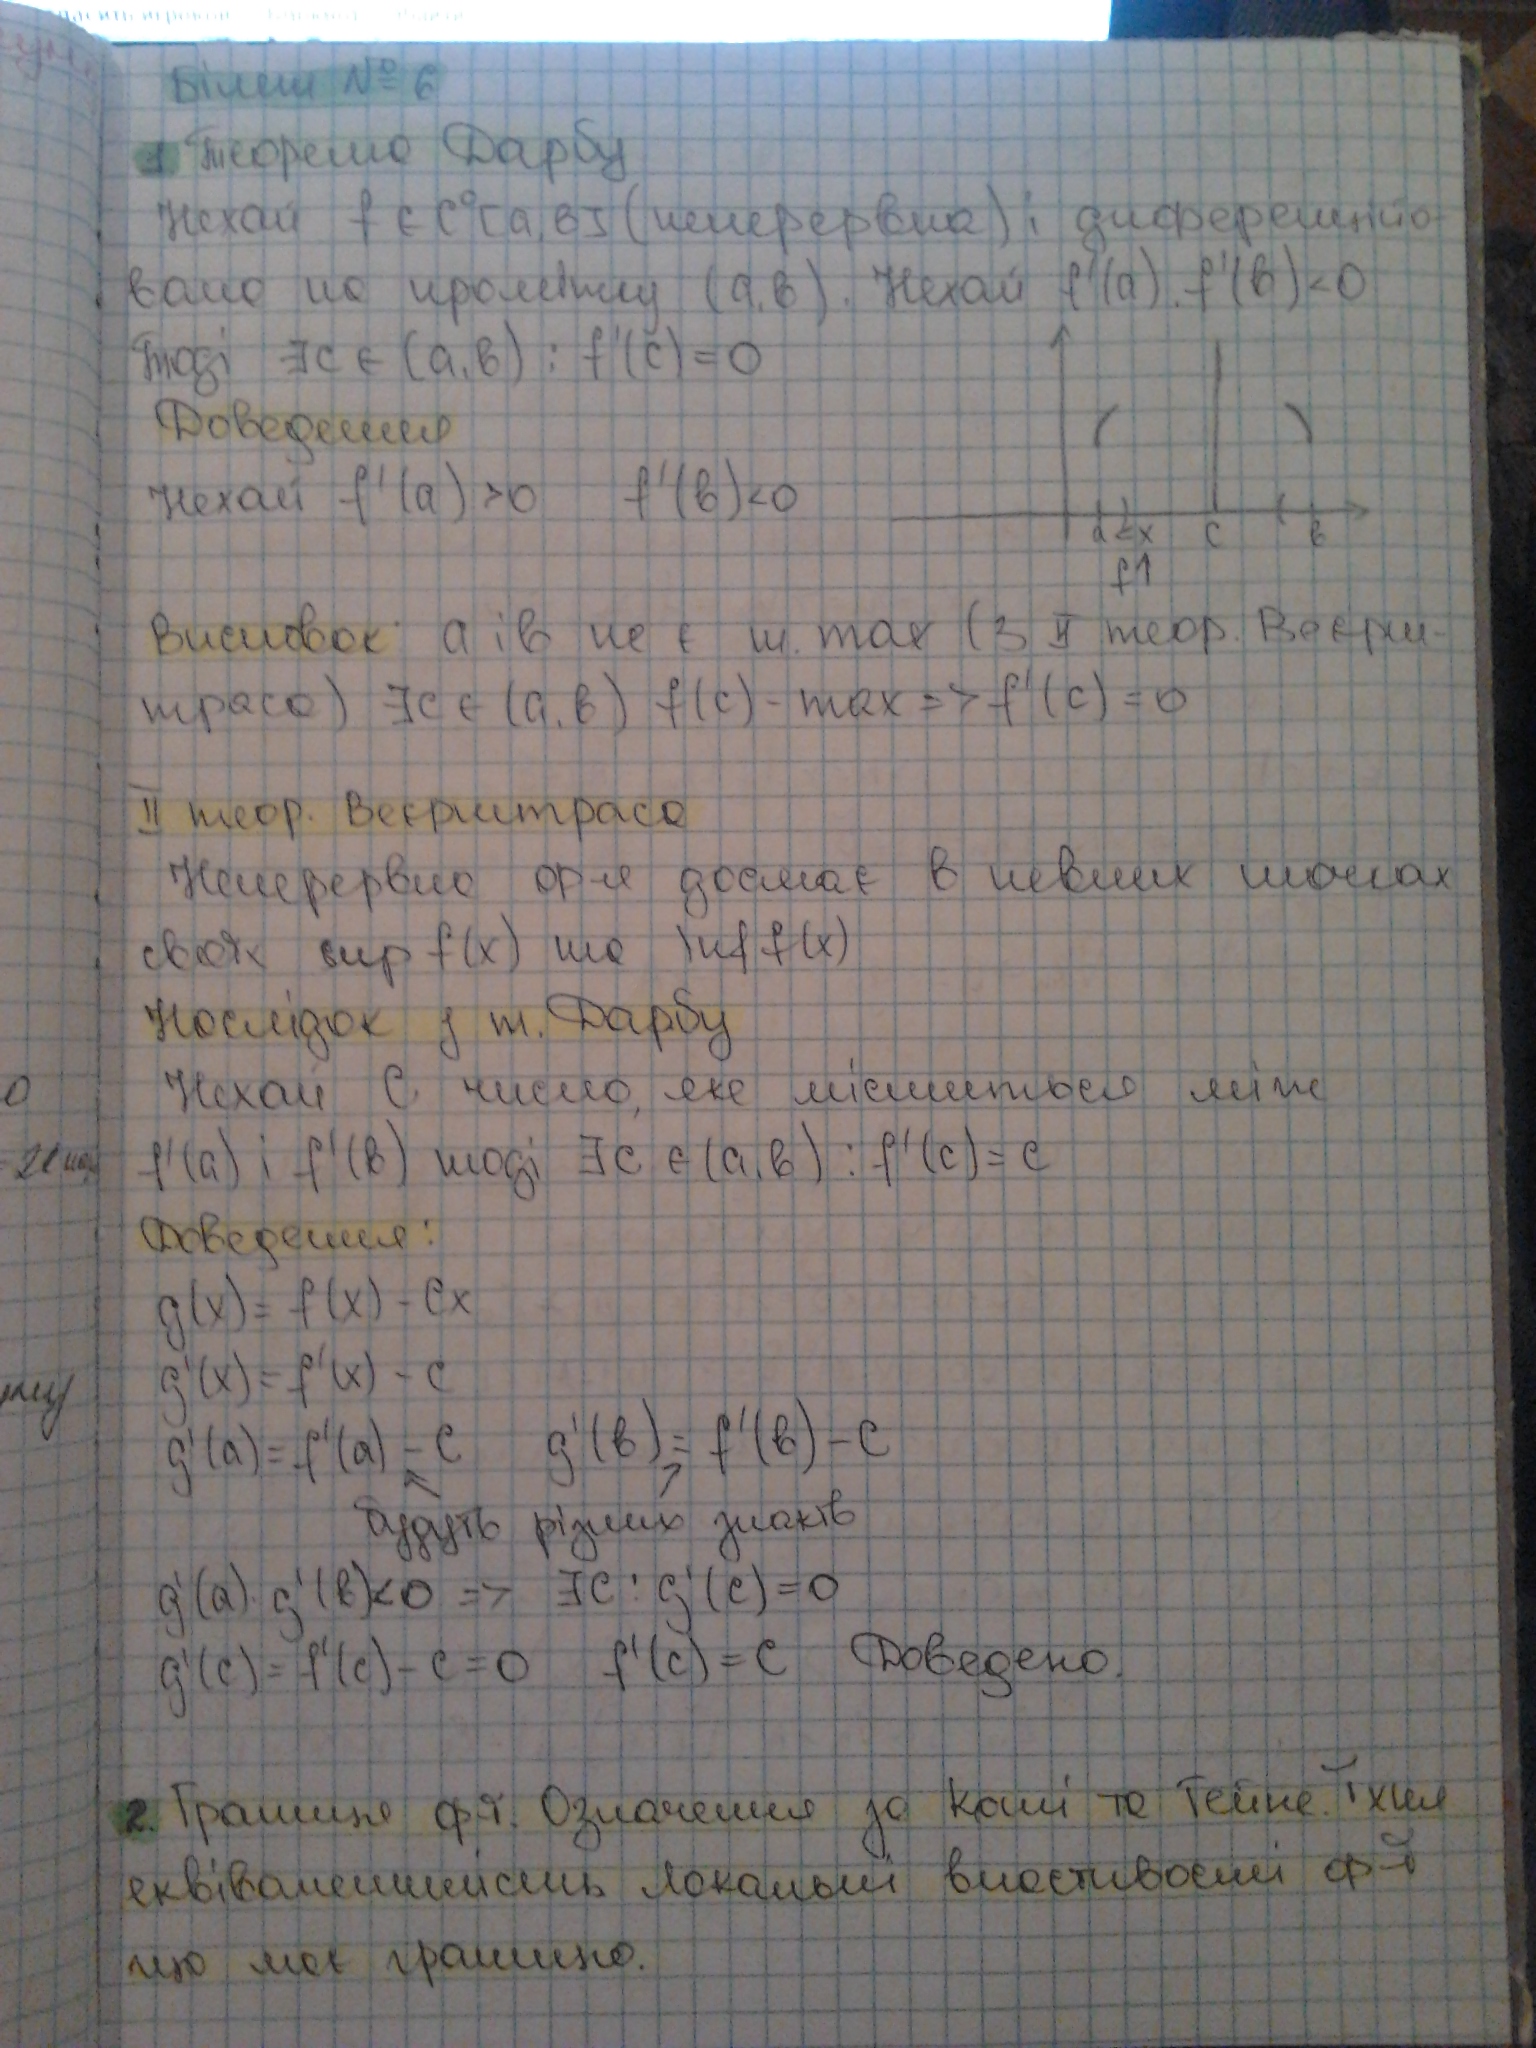 Білет № 6
1. Теорема Дарбу
Нехай f ∈ C⁰[a,в] (неперервна) і диференційо-
вана на проміжку (a,в). Нехай f'(a).f'(в)<0
Тоді ∃c ∈ (a,в) : f'(c)=0
Доведення
Нехай f'(a)>0 f'(в)<0
a <x c в
f↑
Висновок: a і в не є т. max (з II теор. Веєрш-
траса) ∃c ∈ (a,в) f(c) - max => f'(c)=0
II теор. Веєрштраса
Неперервна ф-я досягає в певних точках
своїх sup f(x) та inf f(x)
Наслідок з т. Дарбу
Нехай C число, яке міститься між
f'(a) і f'(в) тоді ∃c ∈ (a,в) : f'(c)=c
Доведення:
g(x)= f(x) - Cx
g'(x)= f'(x) - c
g'(a)= f'(a) - C g'(в)= f'(в) - C
будуть різних знаків
g'(a). g'(в)<0 => ∃C: g'(c)=0
g'(c)= f'(c)-c=0 f'(c)=C Доведено.
0
2. Границя ф-ї. Означення за Коші та Гейне. Їхня
еквівалентність локальні властивості ф-ї
що має границю.